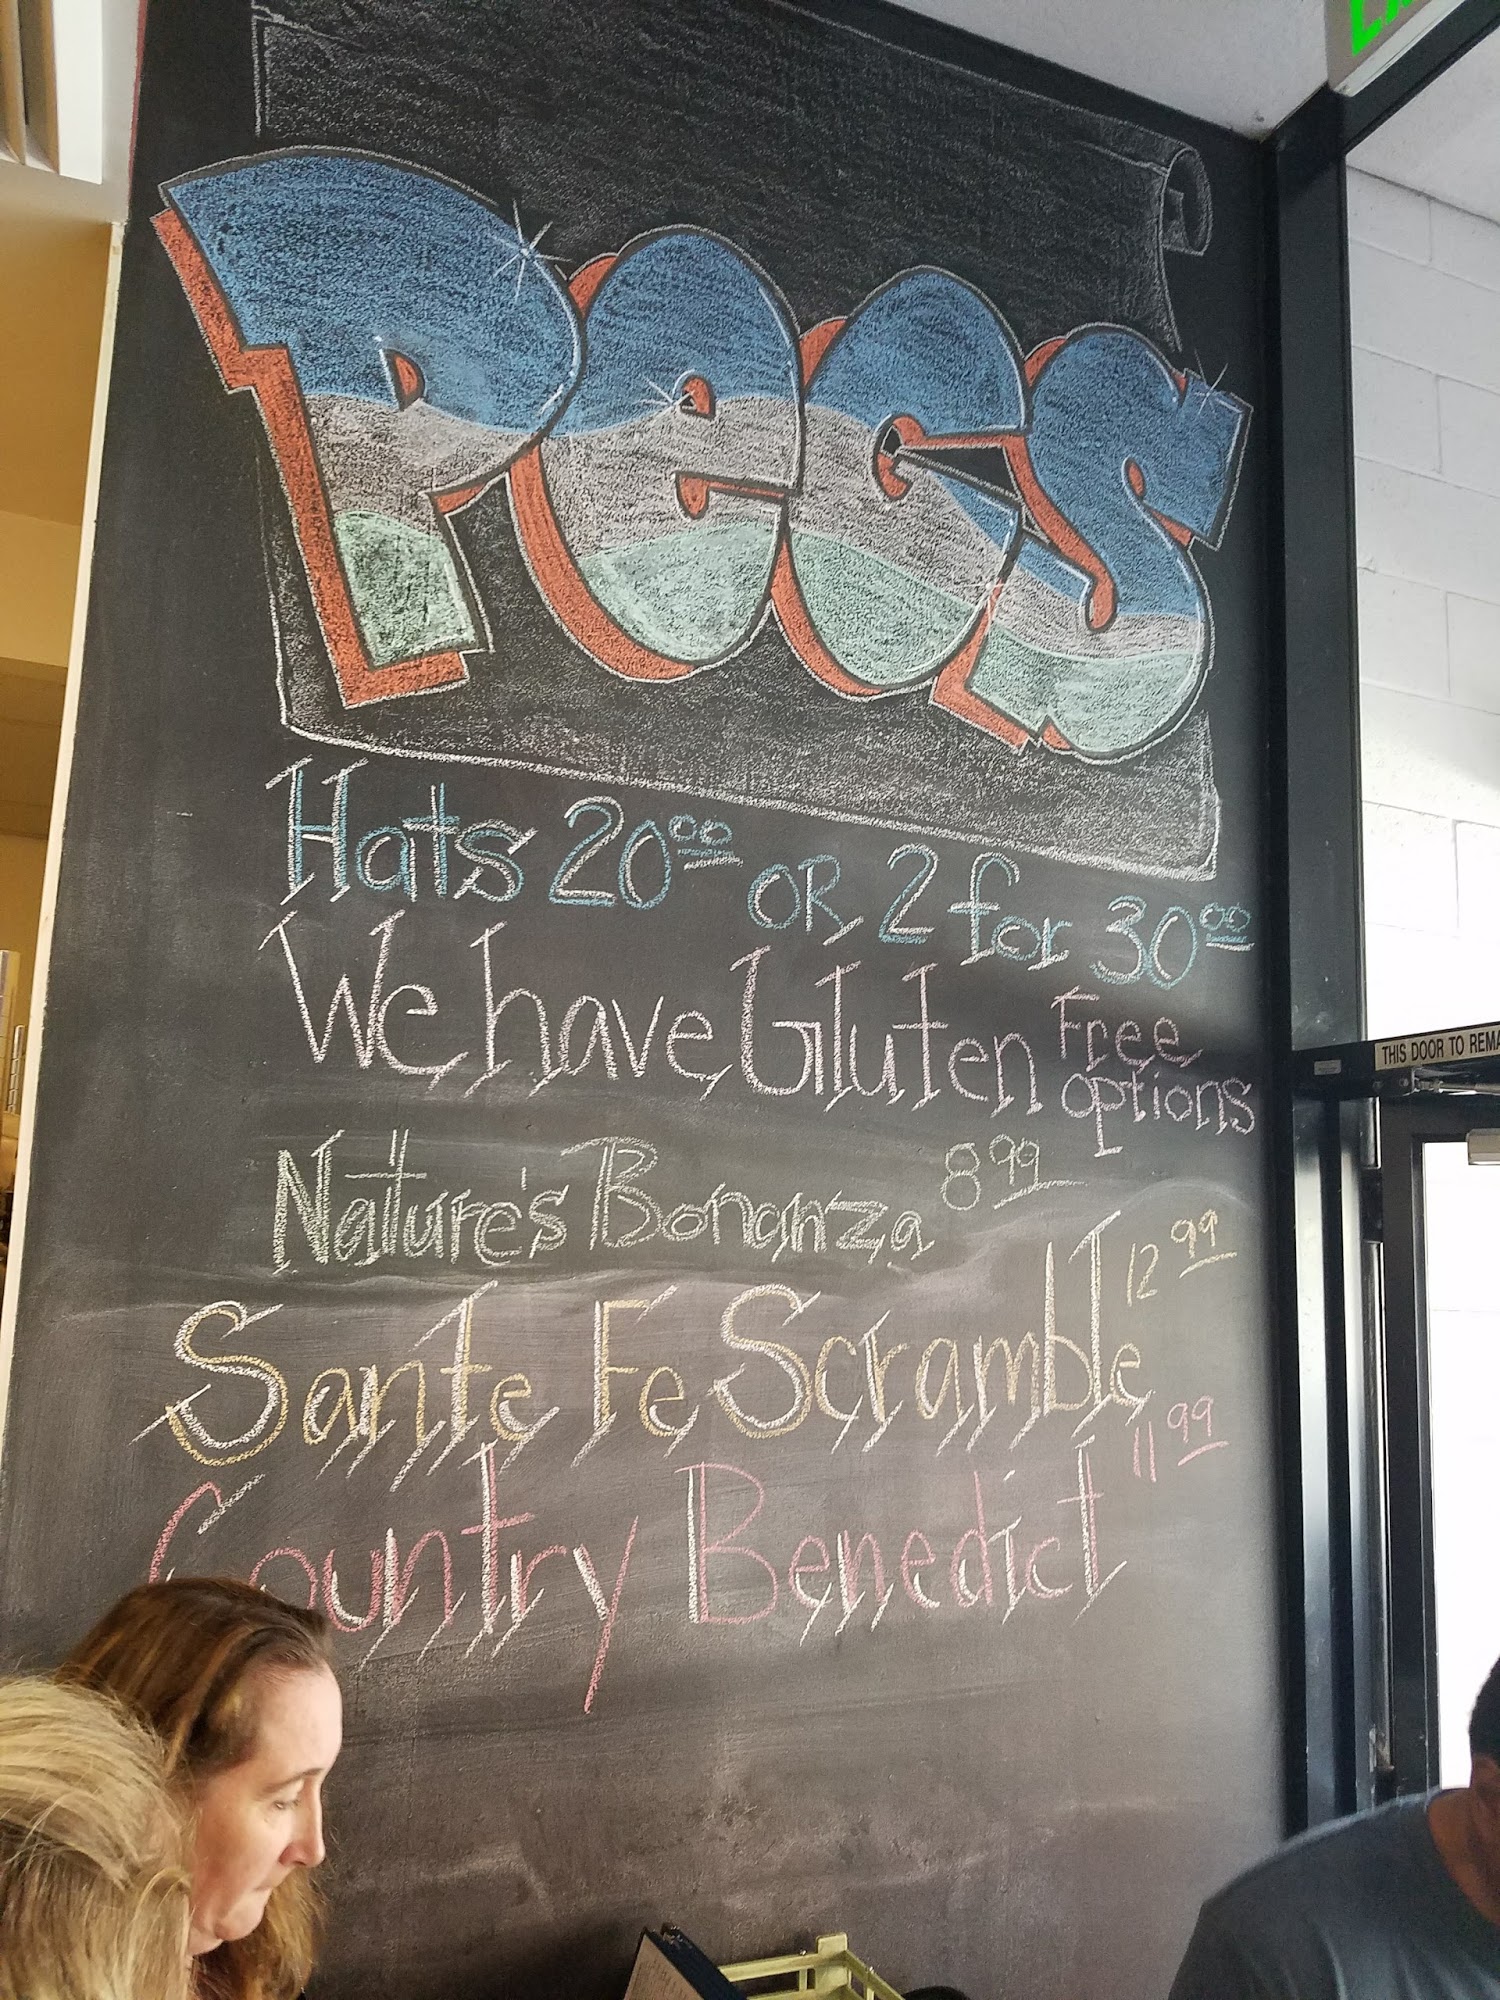 PeGS
Hats 20.00 OR 2 for 30.00
We have Gluten Free options
Nature's Bonanza 8.99
Sante Fe Scramble 12.99
Country Benedict 11.99
THIS DOOR TO REMA